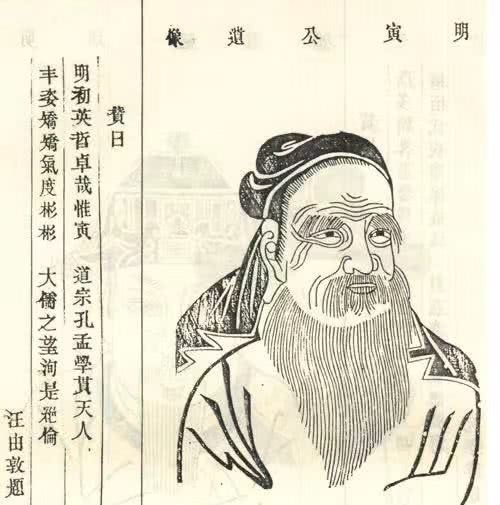 明寅公遺像
賛曰
明初英哲卓哉惟寅 道宗孔孟學貫天人
丰姿嬌嬌氣度彬彬 大儒之望洵是絕倫
汪由敦題